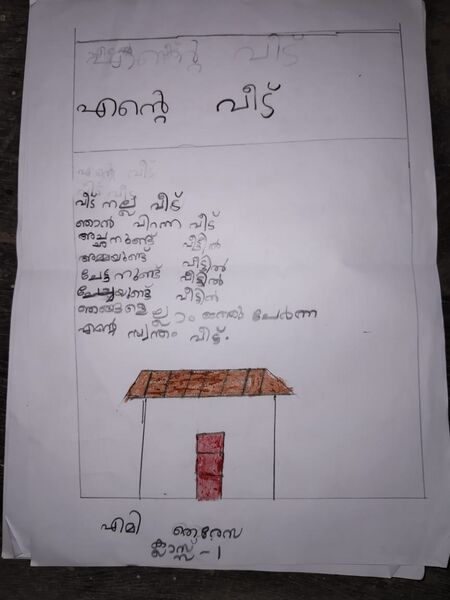 എന്റെ വീട്
എന്റെ വീട്
എന്റെ വീട്
വീട് നല്ല വീട്
ഞാൻ പിറന്ന വീട്
അച്ഛനുണ്ട് വീട്ടിൽ
അമ്മയുണ്ട് വീട്ടിൽ
ചേട്ടനുണ്ട് വീട്ടിൽ
ചേച്ചിയുണ്ട് വീട്ടിൽ
ഞങ്ങളെല്ലാം ഒന്നു ചേർന്ന
എന്റെ സ്വന്തം വീട്.
എമി
ക്ലാസ്സ് - 1